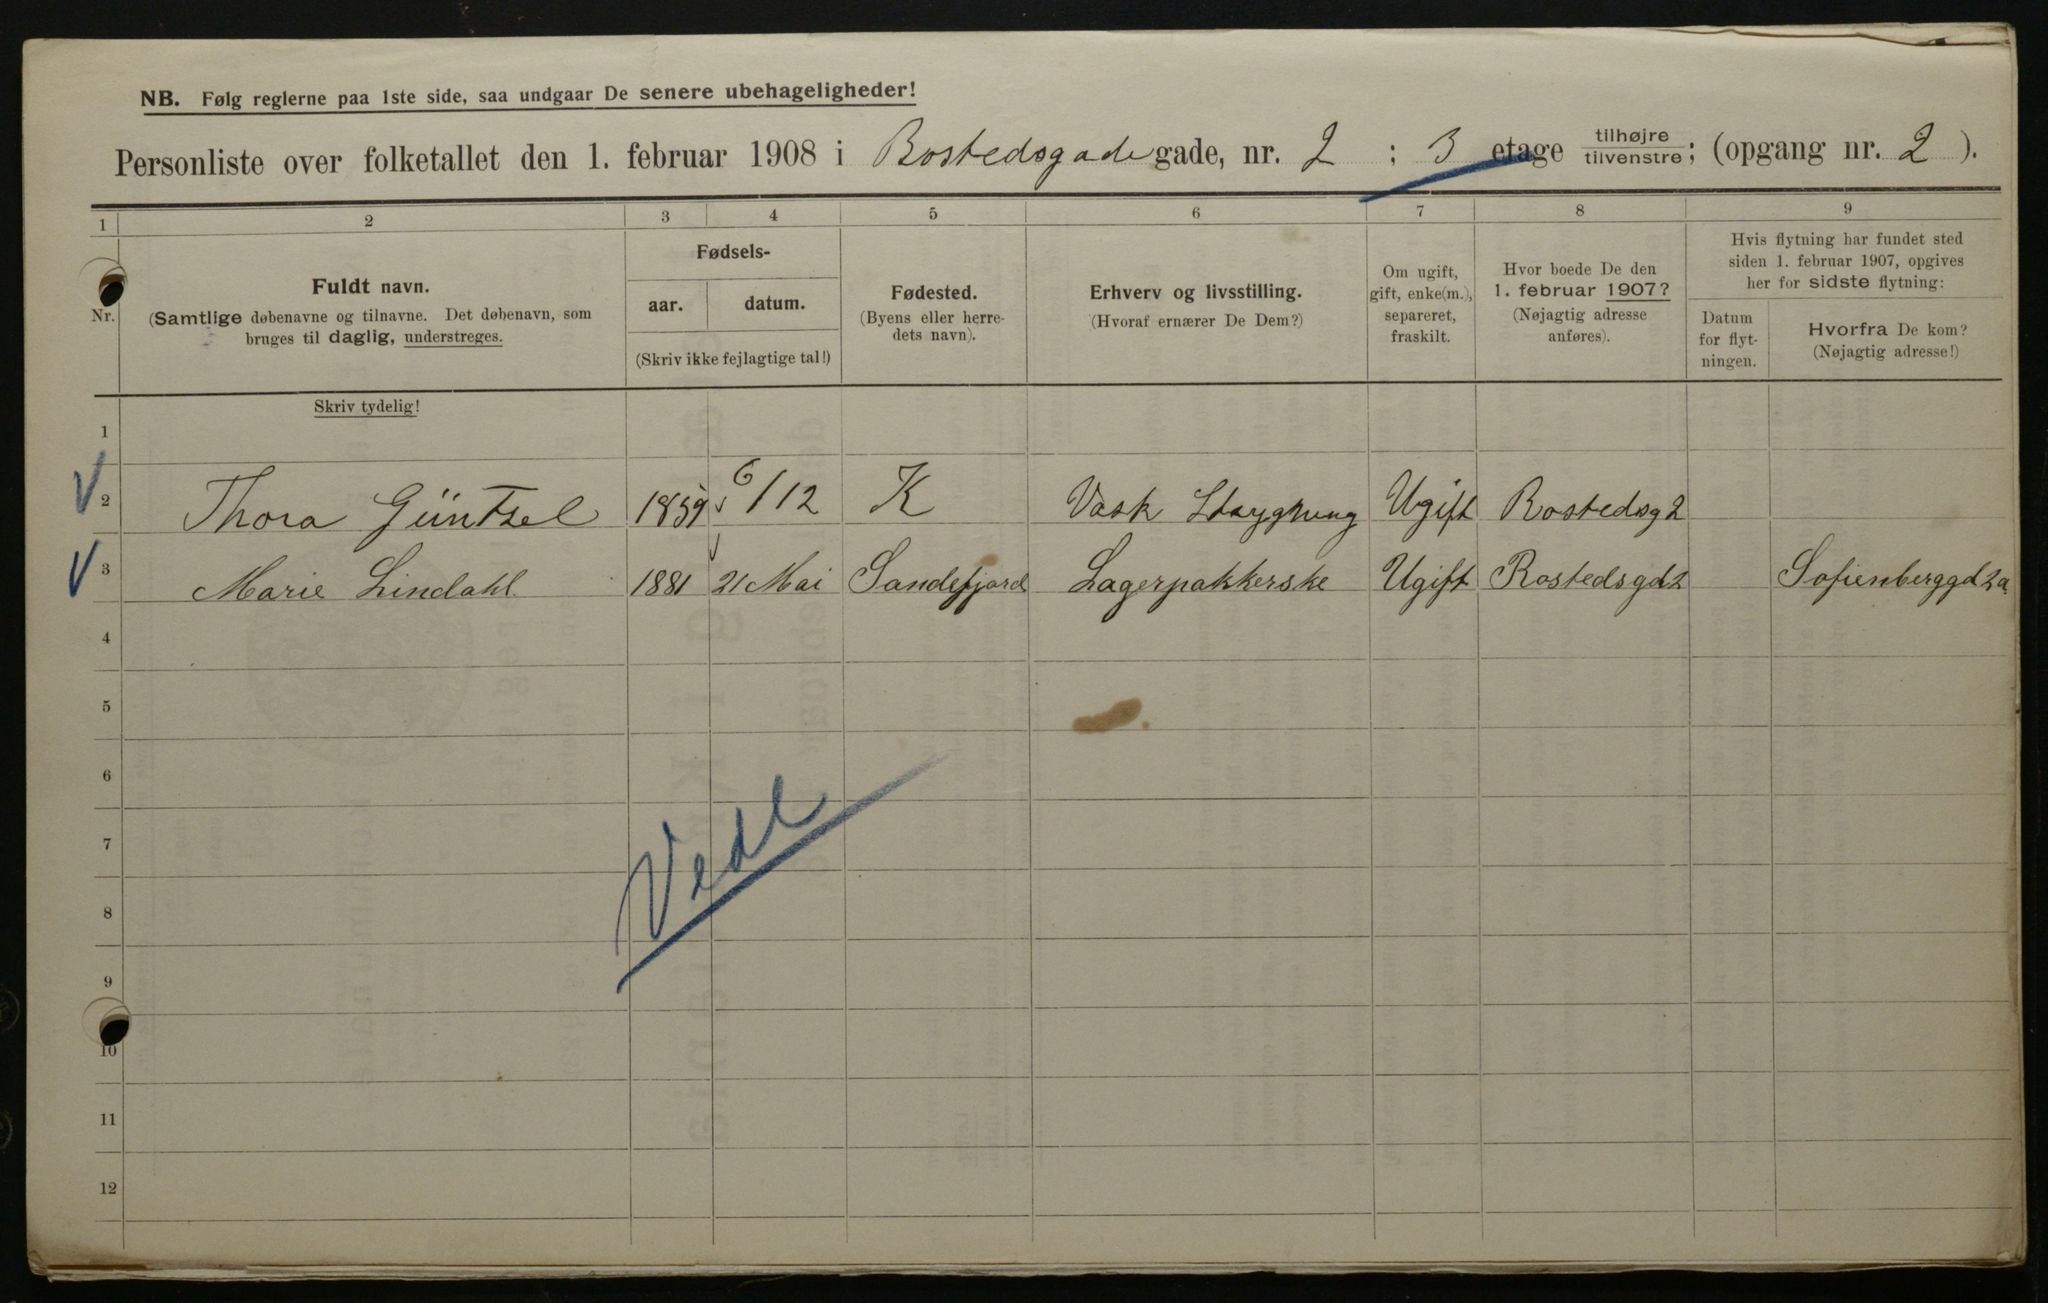 NB. Følg reglerne paa 1ste side, saa undgaar De senere ubehageligheder!
Personliste over folketallet den 1. februar 1908 i Rostedsgade gade, nr. 2 ; 3 etage tilhøjre/tilvenstre; (opgang nr. 2 ).
1 2 3 4 5 6 7 8 9
Nr.
Fuldt navn.
(Samtlige døbenavne og tilnavne. Det døbenavn, som
bruges til daglig, understreges.
Fødsels-
aar. datum.
(Skriv ikke fejlagtige tal!)
Fødested.
(Byens eller herre-
dets navn).
Erhverv og livsstilling.
(Hvoraf ernærer De Dem?)
Om ugift,
gift, enke(m.),
separeret,
fraskilt.
Hvor boede De den
1. februar 1907?
(Nøjagtig adresse
anføres).
Hvis flytning har fundet sted
siden 1. februar 1907, opgives
her for sidste flytning:
Datum
for flyt-
ningen.
Hvorfra De kom?
(Nøjagtig adresse!)
Skriv tydelig!
1
2 Thora Güntzel 1859 6/12 K Vask Ugift Rostedsg 2
3 Marie Lindahl 1881 21 Mai Sandefjord Lagerpakkerske Ugift Rostedsgd 2 Sofienberggd 2a
4
5
6
7
Vedl
8
9
10
11
12